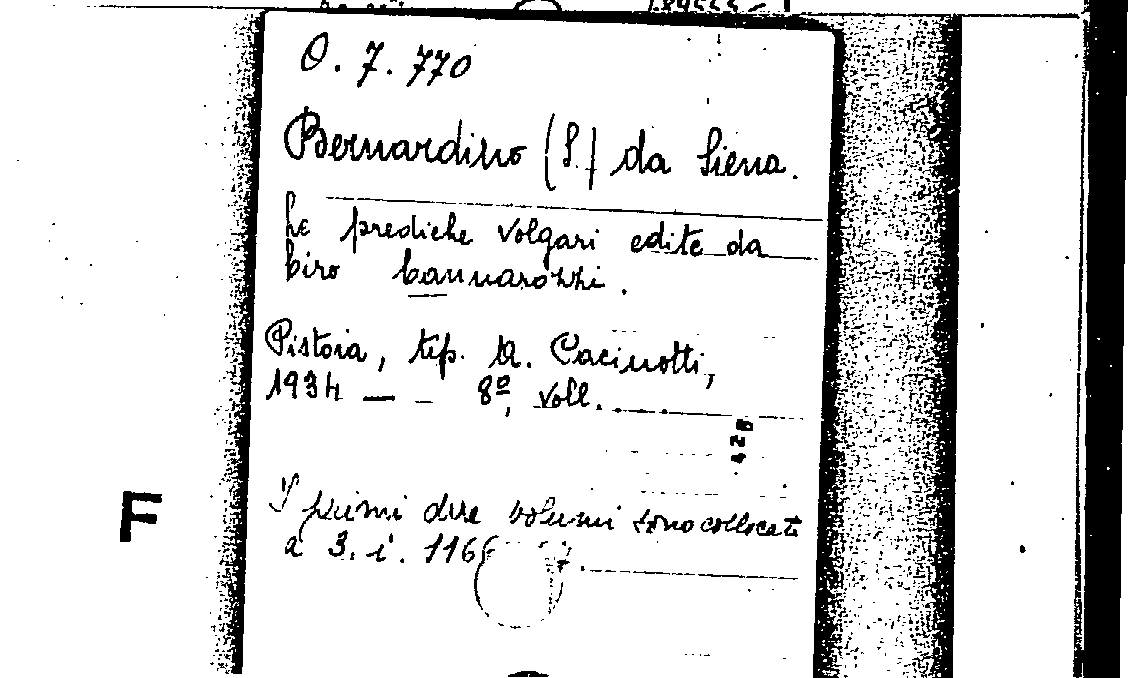 O. 7. 770
Bernardino (S.) da Siena.
Le prediche volgari edite da
Ciro Cannarozzi.
Pistoia, tip. A. Cacinotti,
1934 — - 8º, voll.
428
I primi due volumi sono collocati
a 3. i. 116
F